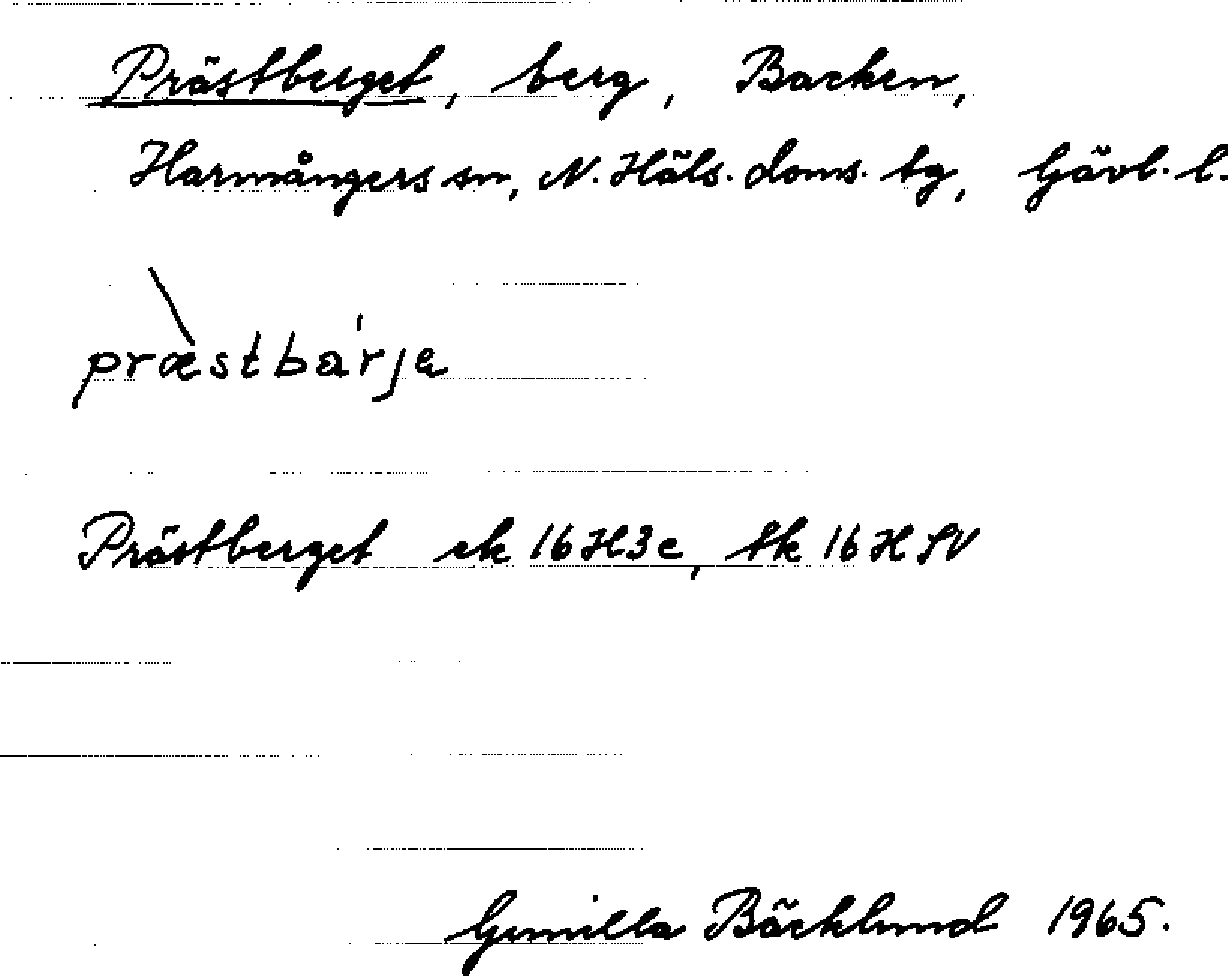 Prästberget, berg, Backen,
Harmångers sn, N. Häls. doms. tg, Gävl. l.
præstbàrja
Prästberget ek 16H3c, tk 16H SV
Gunilla Bäcklund 1965.